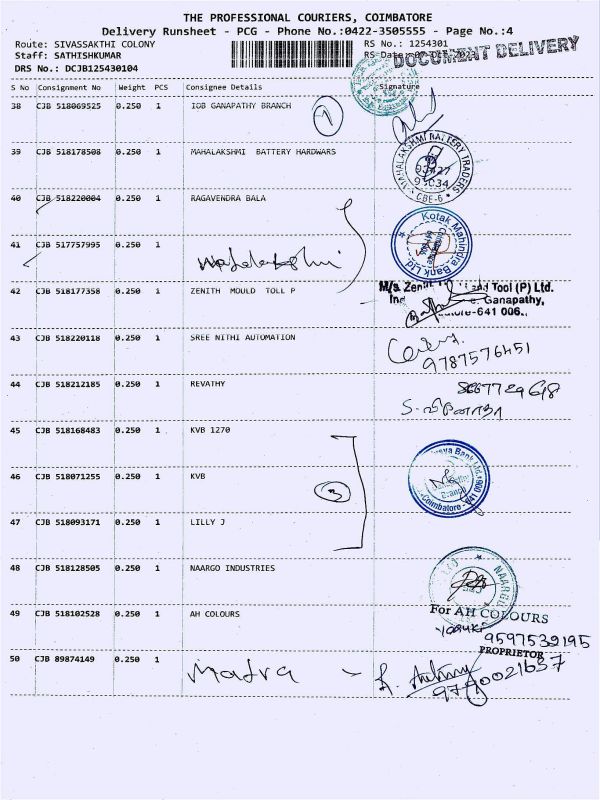 THE PROFESSIONAL COURIERS, COIMBATORE
Delivery Runsheet - PCG - Phone No.:0422-3505555 - Page No.:4
Route: SIVASSAKTHI COLONY
RS No.: 1254301
Staff: SATHISHKUMAR
RS Date:
DOCUMENT DELIVERY
DRS No.: DCJB125430104
S No Consignment No Weight PCS Consignee Details Signature
38 CJB 518069525 0.250 1 IOB GANAPATHY BRANCH
1
39 CJB 518178508 0.250 1 MAHALAKSHMI BATTERY HARDWARS
MAHALAKSHMI BATTERY TRADERS
CBE-6
40 CJB 518220004 0.250 1 RAGAVENDRA BALA
Kotak Mahindra Bank Ltd.
41 CJB 517757995 0.250 1
42 CJB 518177358 0.250 1 ZENITH MOULD TOLL P
M/s. Zenith and Tool (P) Ltd.
Ganapathy,
641 006.
43 CJB 518220118 0.250 1 SREE NITHI AUTOMATION
9787576451
44 CJB 518212185 0.250 1 REVATHY
45 CJB 518168483 0.250 1 KVB 1270
46 CJB 518071255 0.250 1 KVB
3
Bank Ltd
Branch
Coimbatore - 641 006
47 CJB 518093171 0.250 1 LILLY J
48 CJB 518128505 0.250 1 NAARGO INDUSTRIES
49 CJB 518102528 0.250 1 AH COLOURS
For AH COLOURS
9597539195
PROPRIETOR
50 CJB 89874149 0.250 1
9790021637